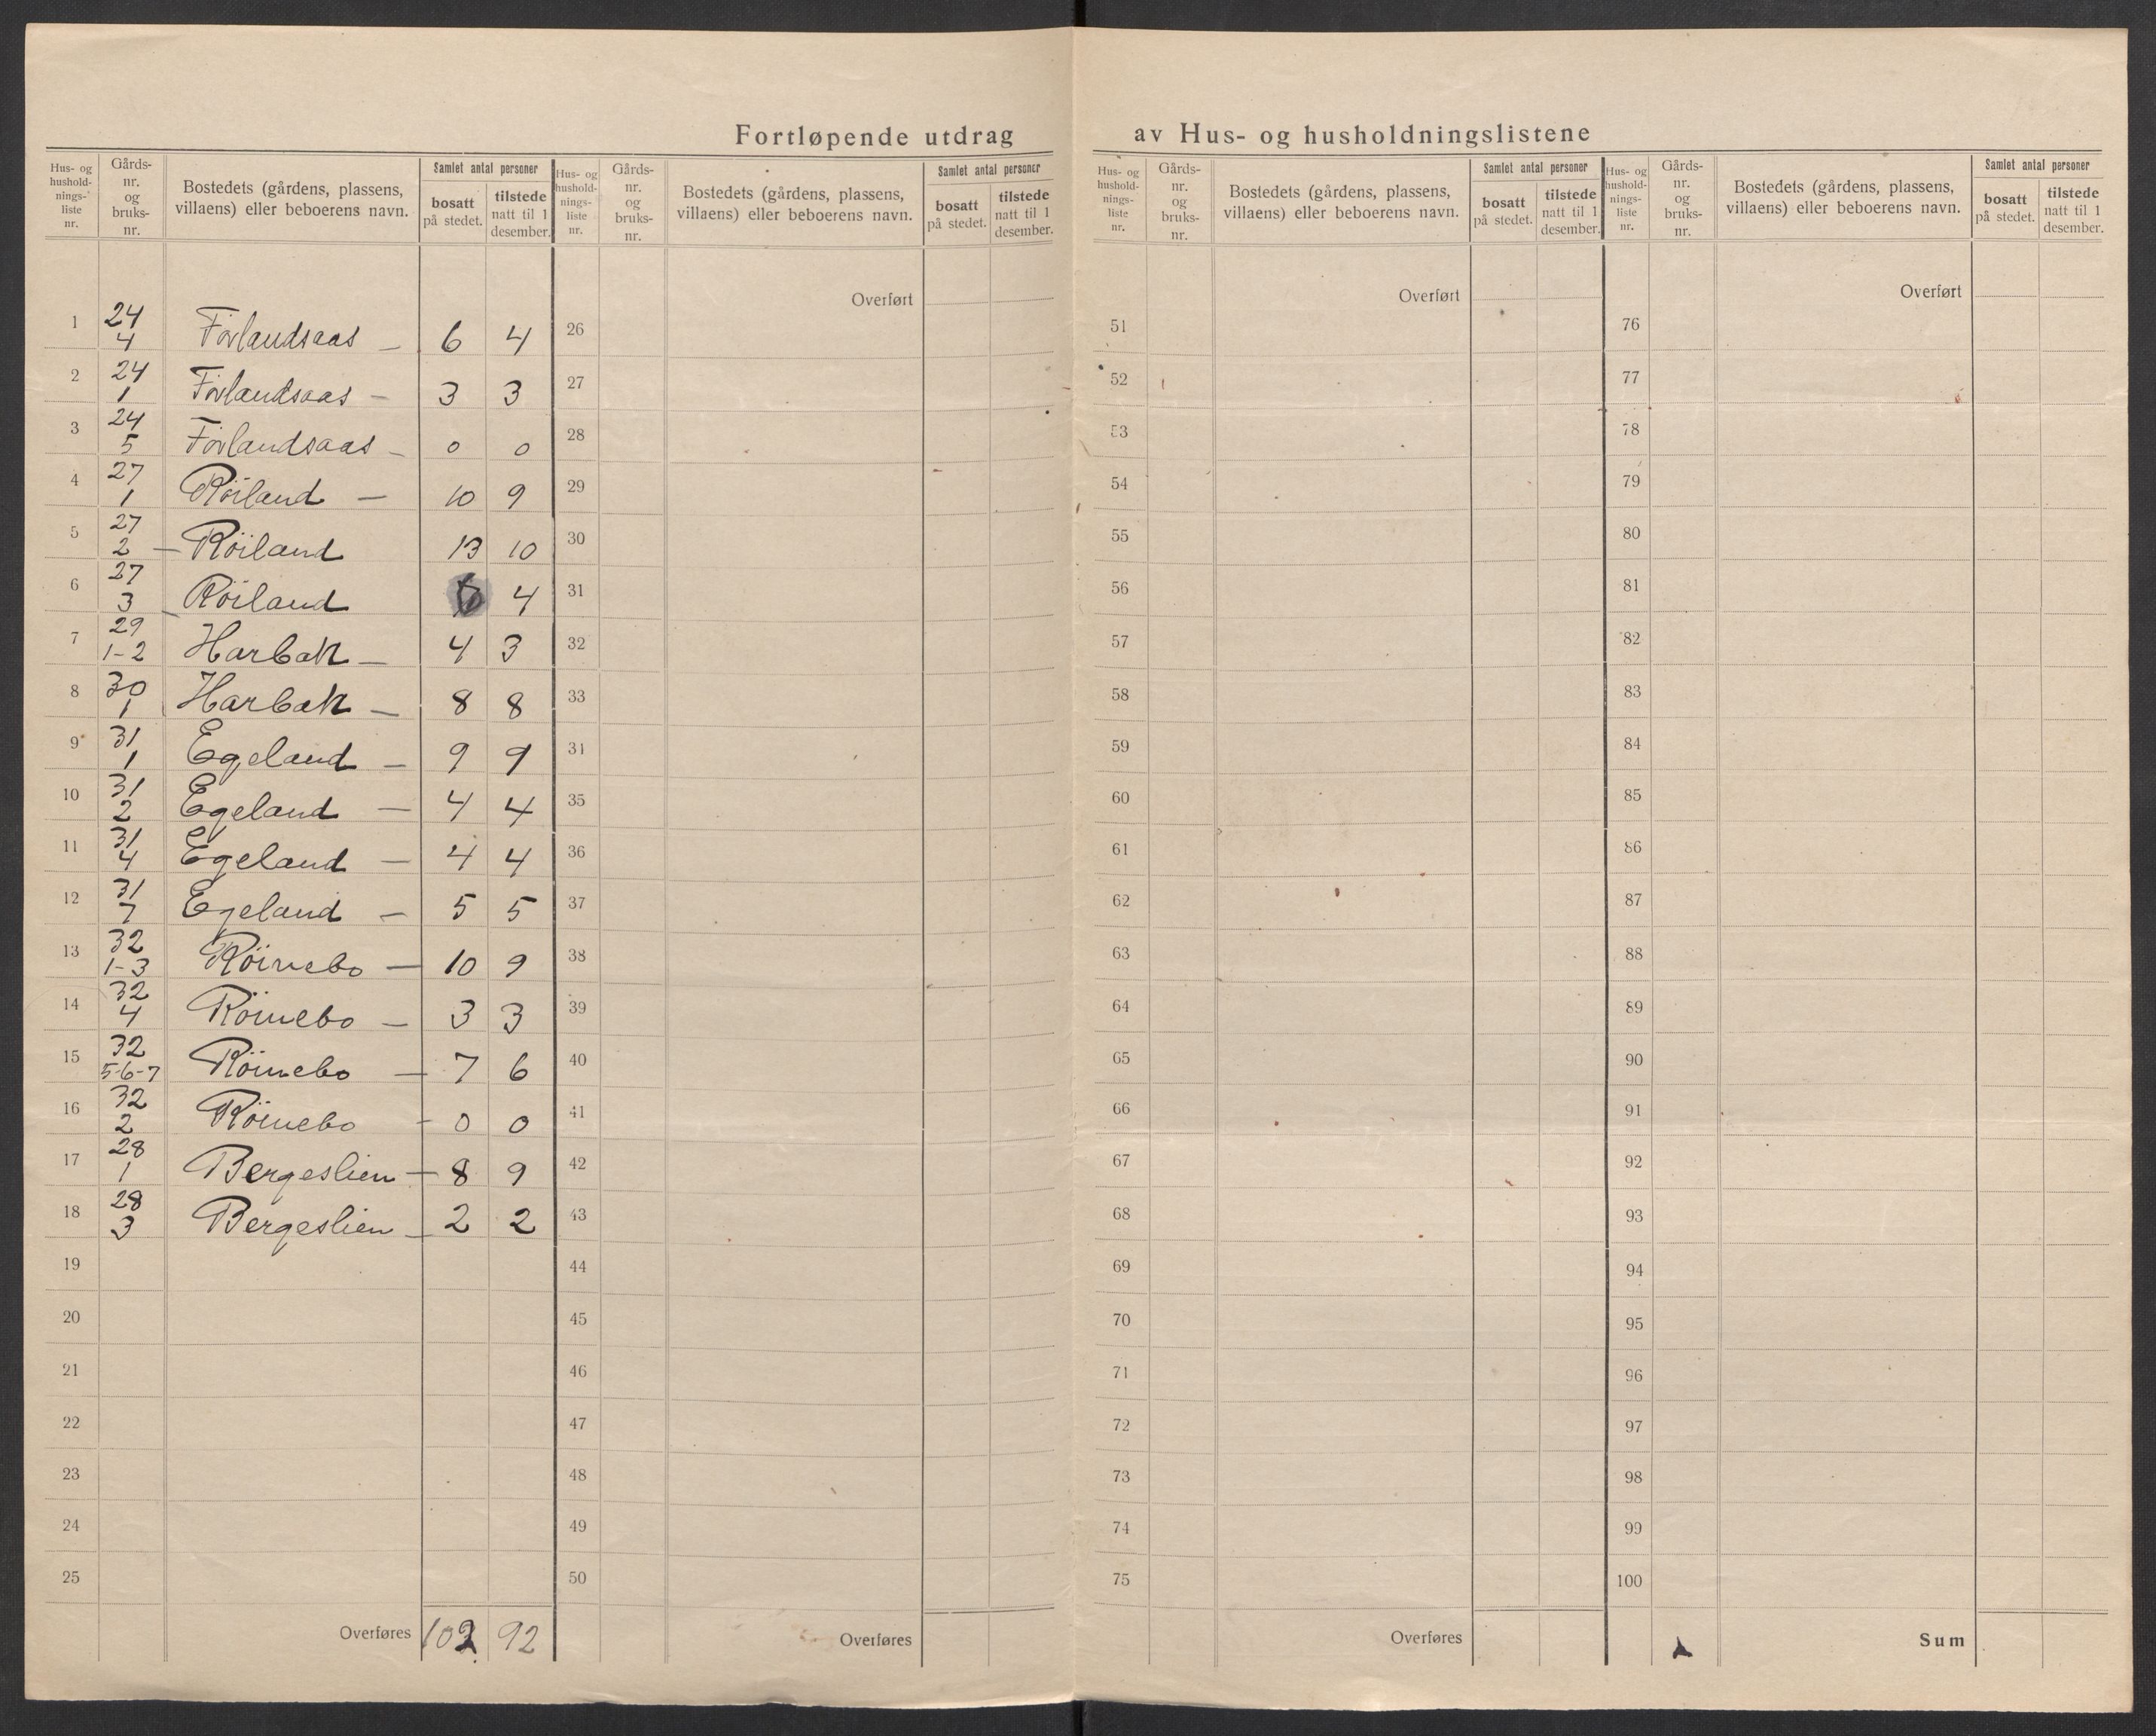 Fortløpende utdrag av Hus- og husholdningslistene
Hus- og hushold-nings-liste nr. Gårds-nr. og bruks-nr. Bostedets (gårdens, plassens, villaens) eller beboerens navn. Samlet antal personer bosatt på stedet. tilstede natt til 1 desember.
Hus- og hushold-nings-liste nr. Gårds-nr. og bruks-nr. Bostedets (gårdens, plassens, villaens) eller beboerens navn. Samlet antal personer bosatt på stedet. tilstede natt til 1 desember.
Hus- og hushold-nings-liste nr. Gårds-nr. og bruks-nr. Bostedets (gårdens, plassens, villaens) eller beboerens navn. Samlet antal personer bosatt på stedet. tilstede natt til 1 desember.
Hus- og hushold-nings-liste nr. Gårds-nr. og bruks-nr. Bostedets (gårdens, plassens, villaens) eller beboerens navn. Samlet antal personer bosatt på stedet. tilstede natt til 1 desember.
Overført Overført Overført
1 24 4 Förlandsaas – 6 4 26 51 76
2 24 1 Förlandsaas – 3 3 27 52 77
3 24 5 Förlandsaas – 0 0 28 53 78
4 27 1 Röiland – 10 9 29 54 79
5 27 2 – Röiland 13 10 30 55 80
6 27 3 Röiland 4 31 56 81
7 29 1-2 Harbak – 4 3 32 57 82
8 30 1 Harbak – 8 8 33 58 83
9 31 1 Egeland – 9 9 31 59 84
10 31 2 Egeland – 4 4 35 60 85
11 31 4 Egeland – 4 4 36 61 86
12 31 7 Egeland – 5 5 37 62 87
13 32 1-3 Röinebo – 10 9 38 63 88
14 32 4 Röinebo – 3 3 39 64 89
15 32 5-6-7 Röinebo – 7 6 40 65 90
16 32 2 Röinebo – 0 0 41 66 91
17 28 1 Bergeslien – 8 9 42 67 92
18 28 3 Bergeslien – 2 2 43 68 93
19 44 69 94
20 45 70 95
21 46 71 96
22 47 72 97
23 48 73 98
24 49 74 99
25 50 75 100
Overføres 102 92 Overføres Overføres Sum